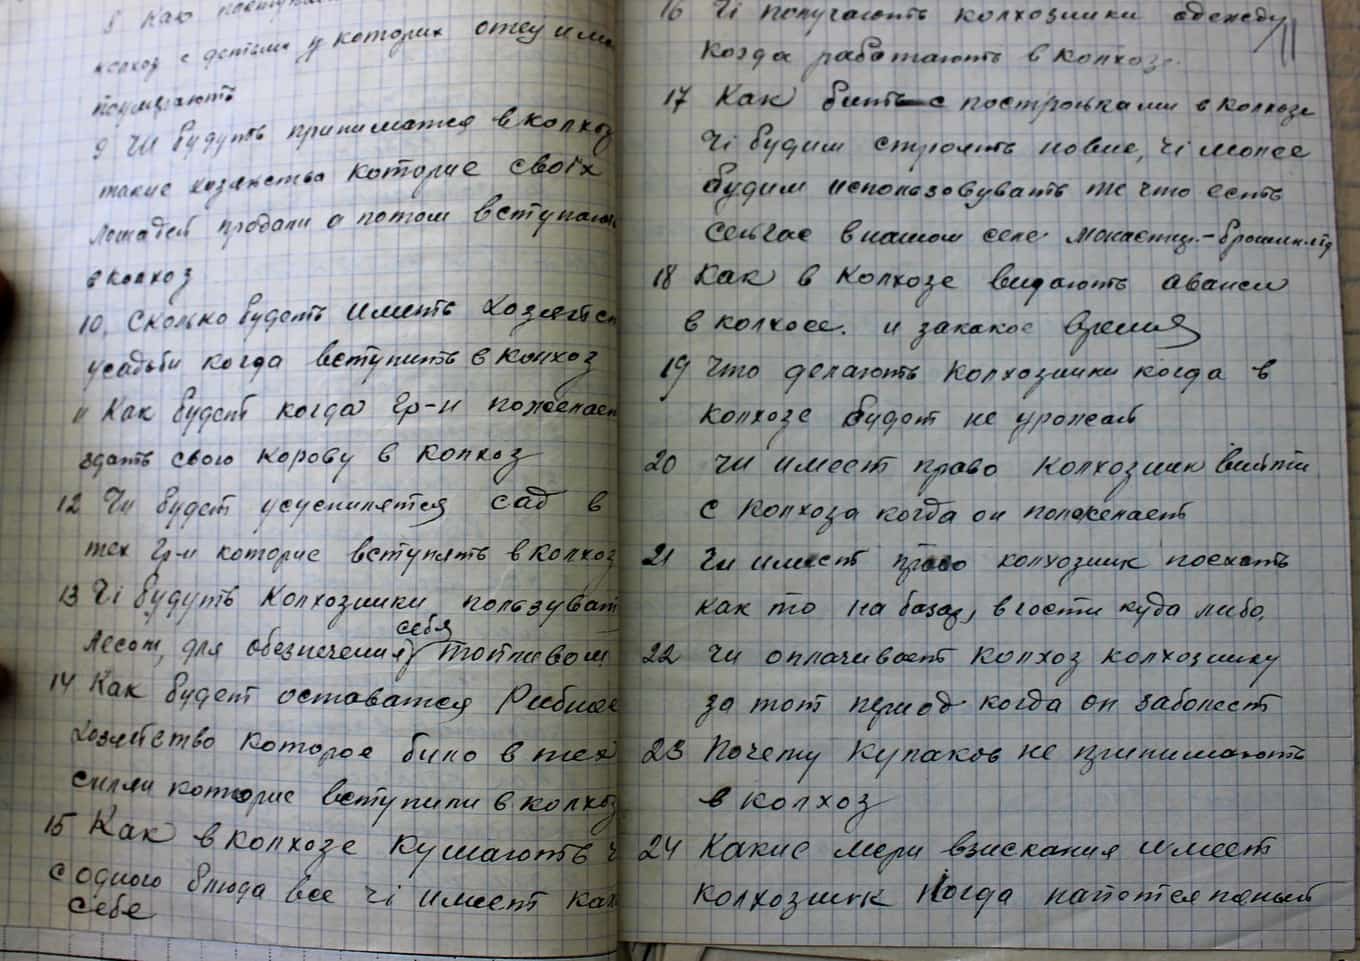 8 Как поступает
колхоз с детьми у которих отец и ма
поумирають
9 Чи будуть приниматся в колхоз
такие хозяйства которие своїх
лошадей продали а потом вступають
в колхоз
10. Сколько будеть иметь хозяйст
усадьби когда вступить в колхоз
11 Как будет когда гр-н пожелает
здать свою корову в колхоз
12 Чи будет усуспилятся сад в
тех гр-н которие вступять в колхоз
13 Чі будуть Колхозники пользуват
лесом, для обезпечения себя топливом
14 Как будет оставатся Рибное
Хозяйство которое било в тех
силян которие вступили в колхоз
15 Как в колхозе кушають ч
с одного блюда все чі имеет каж
себе
16 Чі получають колхозники одежду
когда работають в колхозе.
17 Как бить с постройками в колхозе
Чі будим строить новие, чі может
будим использовувать те что есть
сейчас в нашом селе
18 Как в Колхозе видають аванси
в колхозе. и за какое Время
19 Что делають Колхозники когда в
колхозе будет не урожай
20 Чи имеет право Колхозник вийти
с Колхоза когда он пожелает
21 Чи имеет право колхозник поехать
как то на базар, в гости куда либо.
22 Чи оплачивает Колхоз колхознику
за тот период когда он заболеет
23 Почему Кулаков не принимають
в колхоз
24 Какие мери взискания имеет
колхозник Когда напется пяный